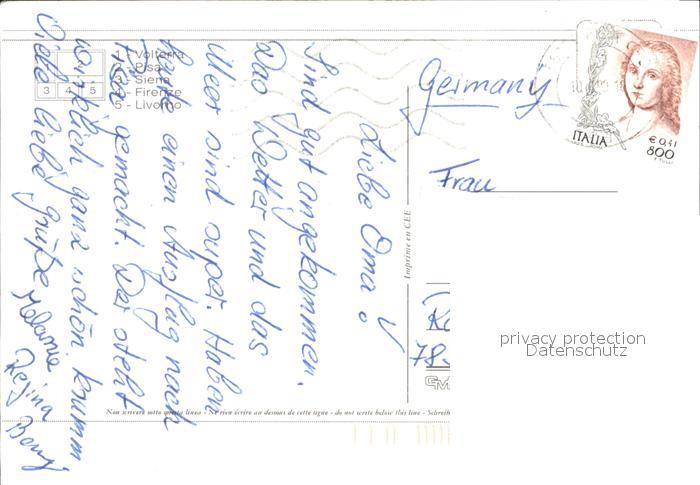 Liebe Oma!
Sind gut angekommen.
Das Wetter und das
Meer sind super. Haben
heute einen Ausflug nach
Pisa gemacht. Der steht
wirklich ganz schön krumm
Viele liebe Grüße
Melanie
Regina
1 - Volterra
2 - Pisa
3 - Siena
4 - Firenze
5 - Livorno
3 4 5
Germany
Frau
78-
ITALIA
€ 0,41
800
Imprime en CEE
privacy protection
Datenschutz
Non scrivere sotto questa linea - Ne rien écrire au dessous de cette ligne - do not write below this line - Schreib